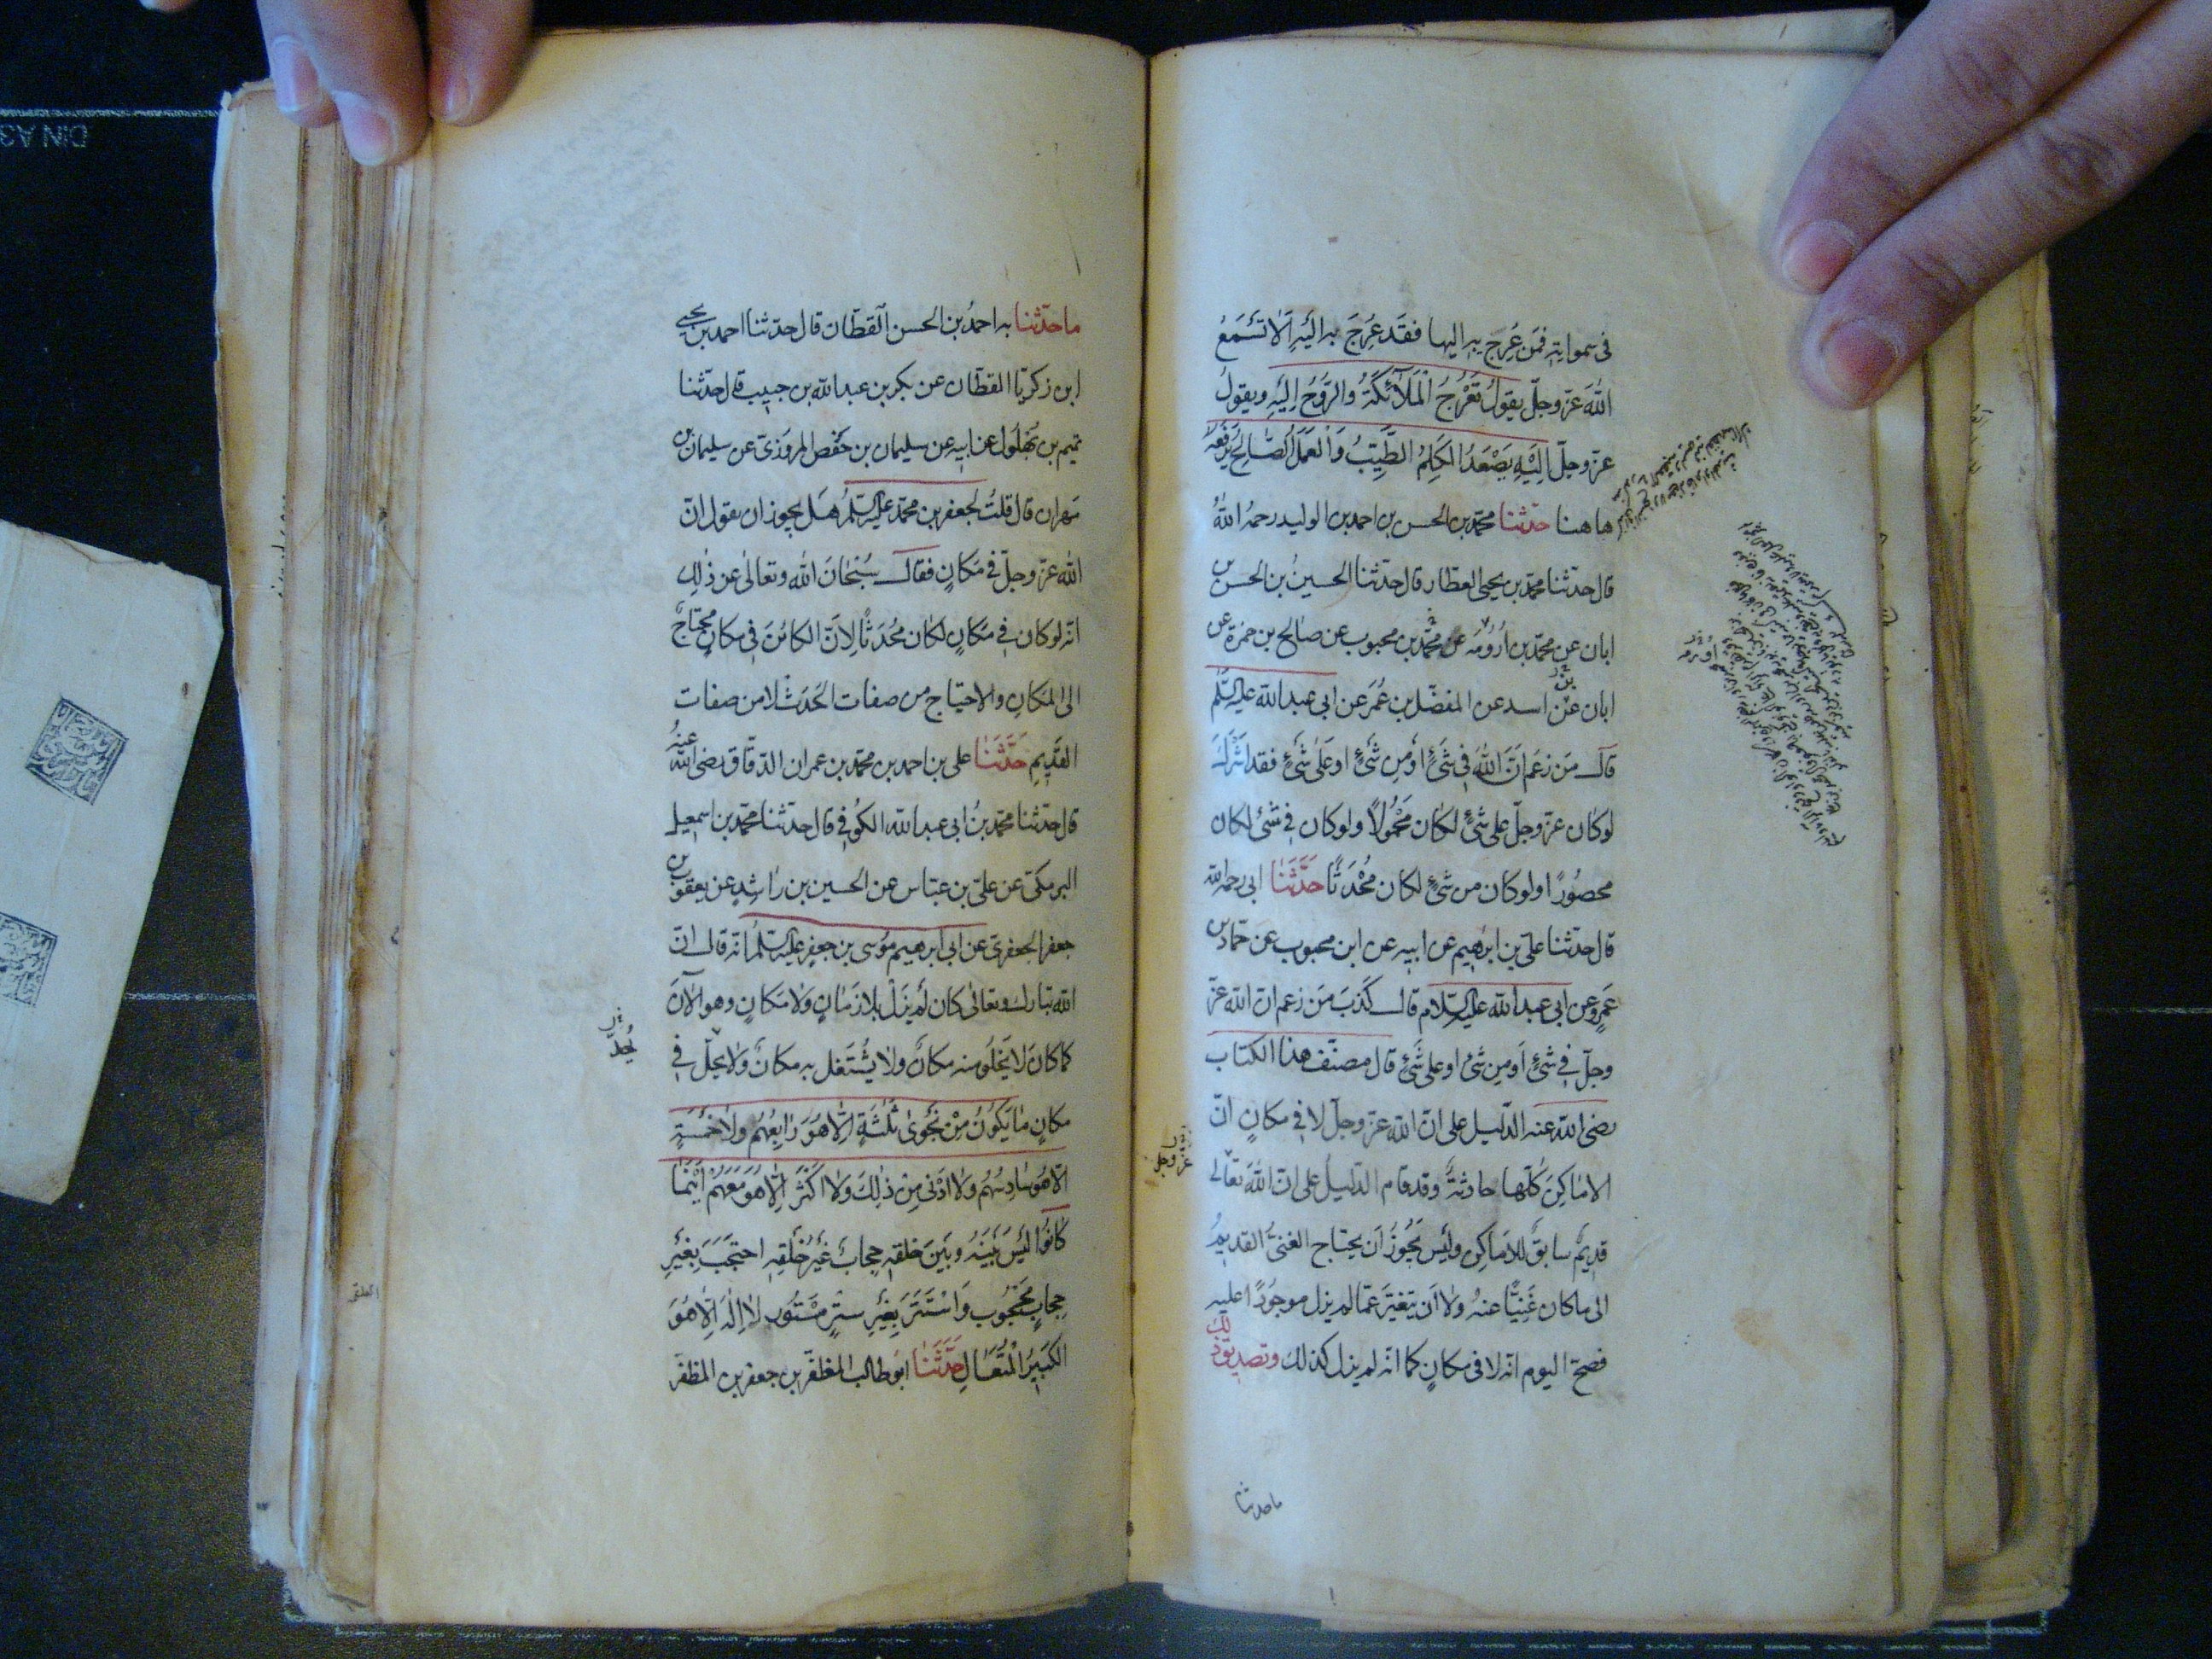 فى سمواته فمن عُرِجَ به اليها فقَد عُرِجَ به اليَهِ اَلا تَسْمَعُ
اللهَ عزّ وجلّ يقولُ تَعْرُجُ الْمَلآئكَةُ والرُّوحُ اِليَهِ ويقولُ
عزّ وجلّ اِلَيْهِ يَصْعَدُ الكَلِمُ الطَّيِّبُ وَالعَمَلُ الصّالِحُ يَرفَعهُ
هاهنا حدّثنا محمّد بن الحسن بن احمد بن الوليد رحمهُ اللهُ
قال حدّثنا محمّد بن يحيى العطّار قال حدّثنا الحسينُ بن الحسن بن
ابان عن محمّد بن اُرُوْمَه عن محمّد بن محبوب عن صالح بن حمزة عن
ابان عن اسد عن المفضّل بن عُمَر عن ابى عبد الله عليه السّلم
قالـ مَن زعَم اَنَّ اللهَ فى شَىْءٍ اَومِن شَىْءٍ او عَلَى شَىْءٍ فقد اَشْرَكَ
لوكان عزّ وجلّ على شَىْءٍ لكان مَحْمُولاً ولوكان فى شَىْء لكان
محصُورًا ولوكان من شَىْءٍ لكان مُحْدَثًا حَدَّثَنا ابى رحمه الله
قال حدّثنا علىّ بن ابرهيم عن ابيه عن ابن محبوب عن حمّاد بن
عَمرٍو عن ابى عبد الله عليه السّلام قالـ كَذَبَ مَن زعم انّ الله عزّ
وجلّ فى شَىْءٍ اَومِن شَىْءٍ او على شَىْءٍ قال مصنّف هذا الكتاب
رضى الله عنه الدّليل على انّ الله عزّ وجلّ لا فى مكانٍ انّ
الاماكِنَ كُلّها حادثةٌ وقد قام الدّليلُ على انّ اللهَ تعالى
قديمٌ سابقٌ للاماكِن وليَس يَجُوزُ اَن يحتاج الغنىُّ القديمُ
الى ما كان غَنِيًّا عنهُ ولا اَن يَتَغيَّرَ عمّا لم يزل موجودًا عليه
فصحّ اليوم انّه لا فى مكانٍ كما انّه لم يزل كذلك وتصديق ذلك
ماحدثنا
عزّ وجل
ماحدّثنا به احمدُ بن الحسن القطّان قال حدّثنا احمد بن يحيى
ابن زكريّا القطّان عن بكر بن عبد الله بن حبيب قال حدّثنا
تميم بن بُهْلُول عن ابيه عن سليمان بن حَفْص المروَزىّ عن سليمان بن
مهران قال قلتُ لجعفر بن محمّد عليه السّلمُ هَل يجوز ان يقول انّ
الله عزّ وجلّ فى مكانٍ فقالـ سُبْحَانَ الله وتعالى عن ذلِك
انّه لوكان فى مَكانٍ لكان مُحْدَثًا لِاَنّ الكائنَ فى مكانٍ محتاجٌ
الى المكانِ والاحتياج من صفات الحَدَث لا من صفات
القَديمِ حَدَّثَنا على بن احمد بن محمّد بن عمران الدّقّاق رضى الله عنهُ
قال حدّثنا محمّد بنُ ابى عبد الله الكُوفى قال حدّثنا محمّد بن اسمعيل
البرمكىّ عن علىّ بن عبّاس عن الحسين بن راشِدٍ عن يعقوب بن
جعفر الجعفرىّ عن ابى ابرهيم مُوسى بن جعفر عليه السّلم انّه قال انّ
الله تبارك وتعالى كان لَم يَزَلْ بلا زَمانٍ ولا مَكانٍ وهو الآنَ
كما كان لا يَخلُو منه مكانٌ ولا يَشْتَغل به مكانٌ ولا يحلّ فى
مكانٍ مايَكُونُ مِنْ نَجْوى ثَلٰثَةٍ اِلّا هُوَ رابِعُهُمْ ولا خَمْسَةٍ
اِلّا هُوَ سَادِسُهُم ولا اَدْنى مِنْ ذٰلِكَ ولا اَكْثَرَ اِلّا هُوَ مَعَهُمْ اَيْنَمَا
كَانُوا ليْسَ بَيْنَهُ وبَيْنَ خلقه حجابٌ غَيْرُ خَلقِه احتجَبَ بِغَيْرِ
حِجابٍ مَحْجُوب وَاسْتَتَرَ بِغَيْرِ سِتْرٍ مَسْتُورٍ لا اِلٰهَ اِلّا هُوَ
الكَبيِرُ الْمُتَعَالِ حَدَّثَنَا ابو طالب المظفّر بن جعفر بن المظفّر
DIN A3